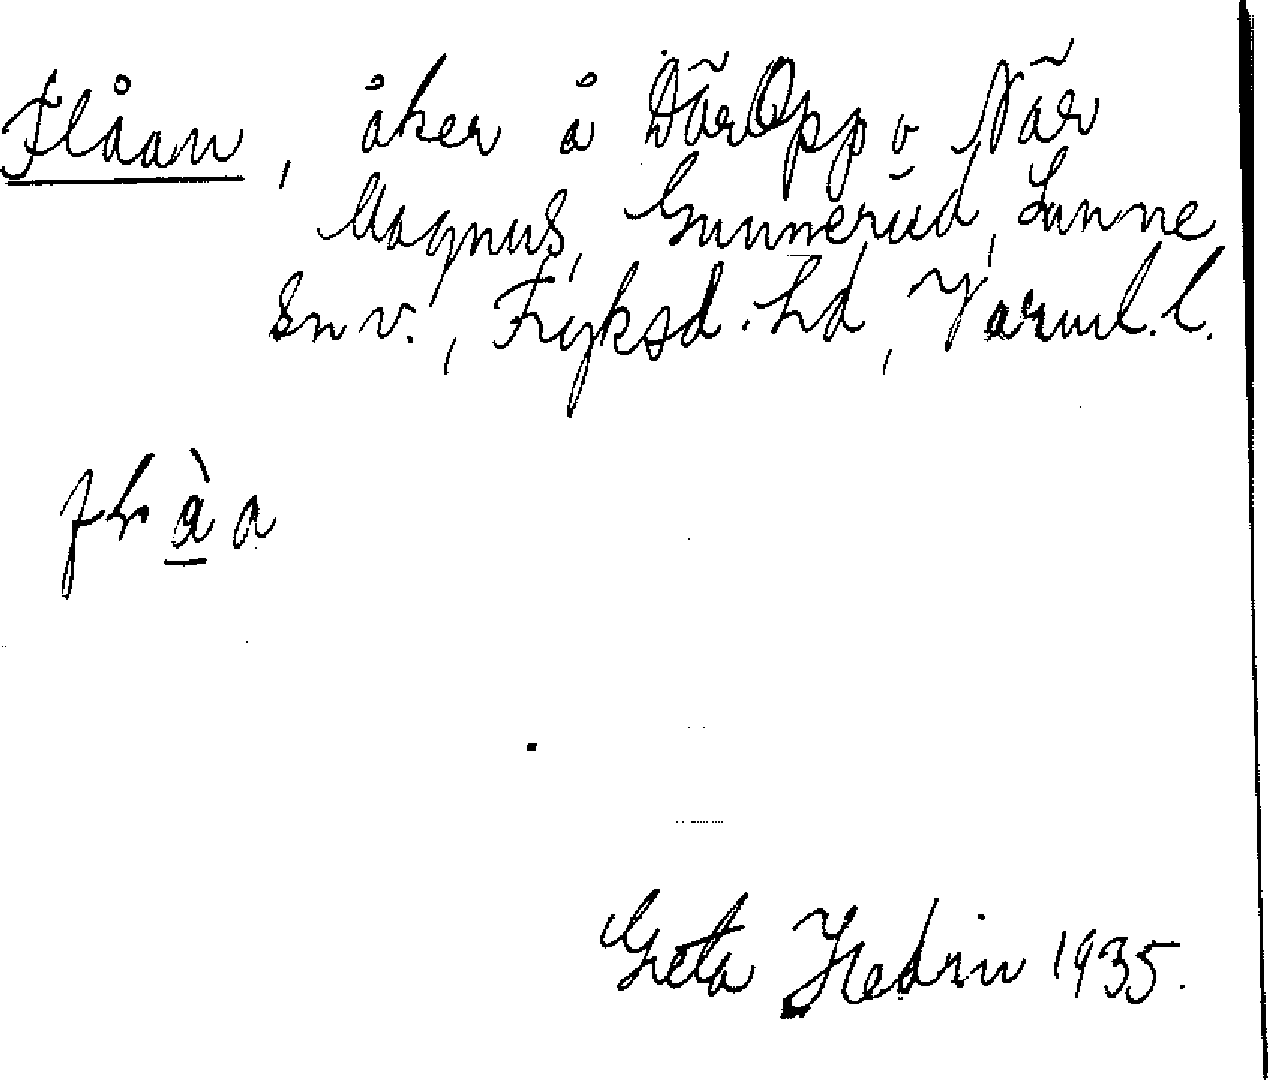 Flåan, åker å DärOpp o När
Magnus, Gunnerud, Sunne
sn v., Fryksd. hd, Värml. l.
flàa
Greta Hedin 1935.